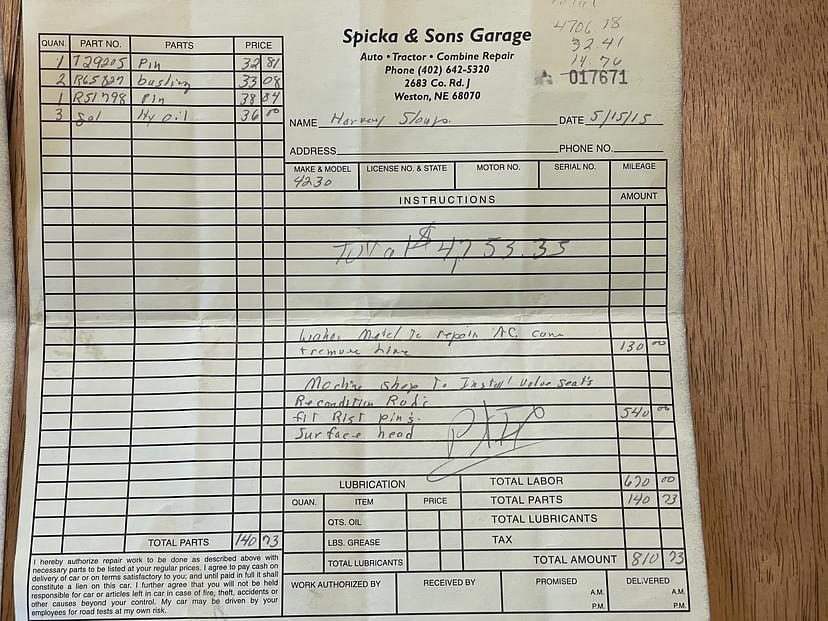 4706.18
32.41
14.76
Spicka & Sons Garage
Auto • Tractor • Combine Repair
Phone (402) 642-5320
2683 Co. Rd. J
Weston, NE 68070
017671
QUAN. PART NO. PARTS PRICE
1 T29205 Pin 32 81
2 R65827 bushing 33 08
1 R51798 Pin 38 84
3 gal Hy oil 36 00
TOTAL PARTS 140 73
NAME Harvey DATE 5/15/15
ADDRESS PHONE NO.
MAKE & MODEL LICENSE NO. & STATE MOTOR NO. SERIAL NO. MILEAGE
4230
INSTRUCTIONS AMOUNT
Total $4,753.35
Metal to repair AC
+ remove line 130 00
Machine Shop To Install Valve seats
Recondition Rods
fit Rist pins. 540 00
Surface head
LUBRICATION
QUAN. ITEM PRICE
QTS. OIL
LBS. GREASE
TOTAL LUBRICANTS
TOTAL LABOR 670 00
TOTAL PARTS 140 73
TOTAL LUBRICANTS
TAX
TOTAL AMOUNT 810 73
I hereby authorize repair work to be done as described above with
necessary parts to be listed at your regular prices. I agree to pay cash on
delivery of car or on terms satisfactory to you; and until paid in full it shall
constitute a lien on this car. I further agree that you will not be held
responsible for car or articles left in car in case of fire, theft, accidents or
other causes beyond your control. My car may be driven by your
employees for road tests at my own risk.
WORK AUTHORIZED BY RECEIVED BY PROMISED DELIVERED
A.M. A.M.
P.M. P.M.